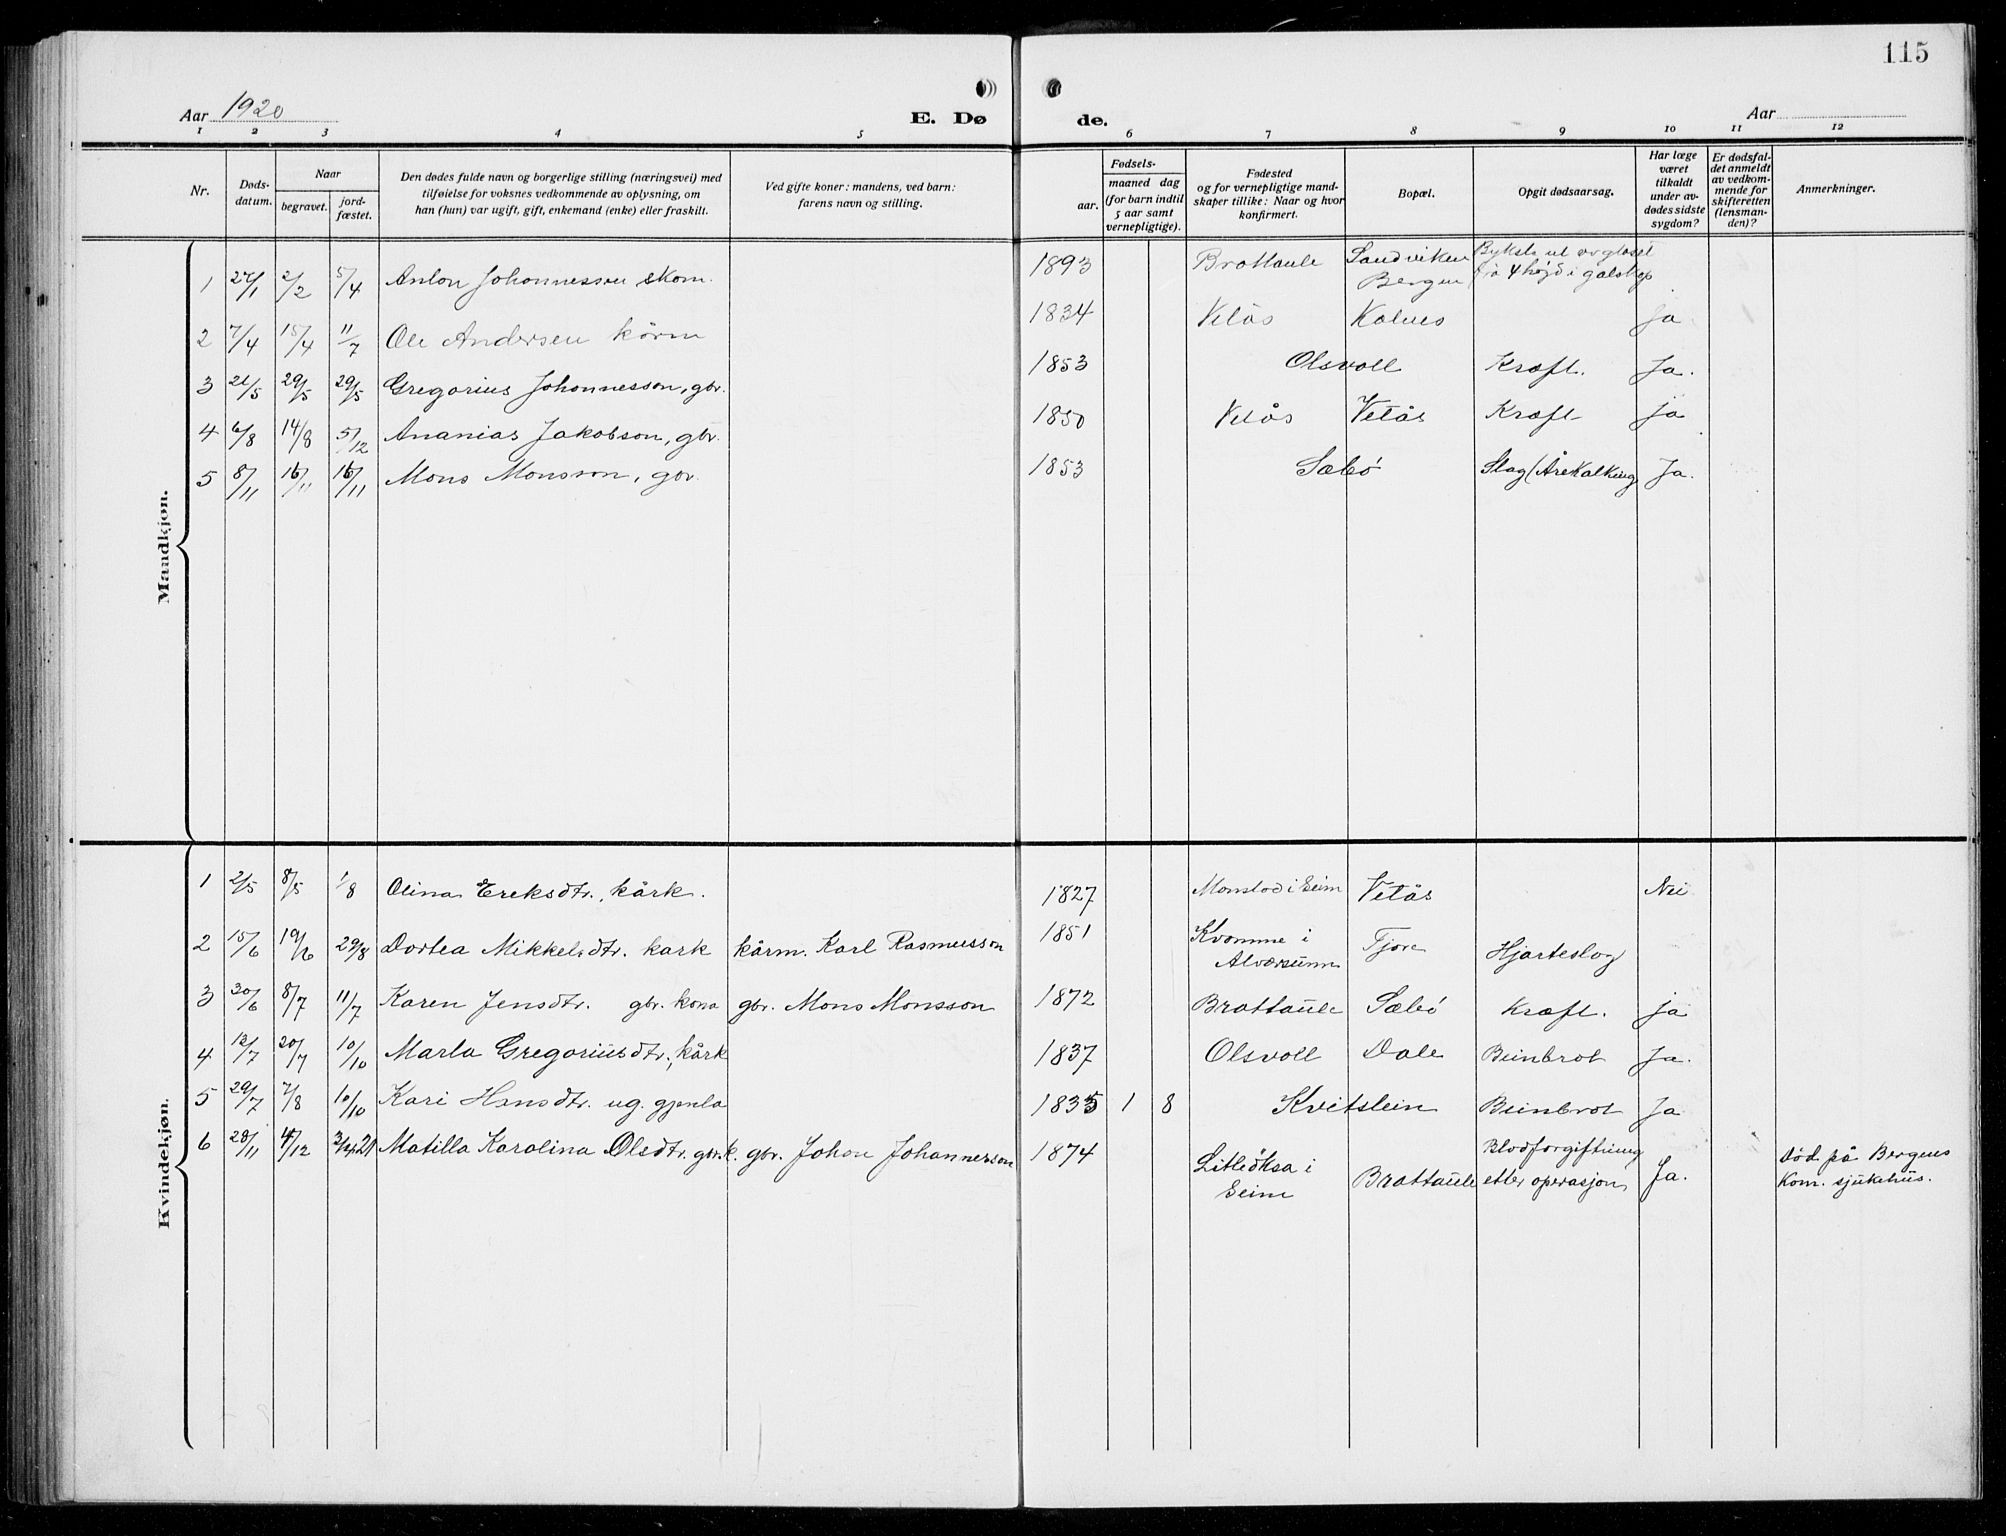 115
Aar 1920
E. Dø
de.
Aar
1 2 3 4 5 6 7 8 9 10 11 12
Nr.
Døds-
datum.
Naar
begravet.
jord-
fæstet.
Den dødes fulde navn og borgerlige stilling (næringsvei) med
tilføielse for voksnes vedkommende av oplysning, om
han (hun) var ugift, gift, enkemand (enke) eller fraskilt.
Ved gifte koner: mandens, ved barn:
farens navn og stilling.
Fødsels-
aar.
maaned dag
(for barn indtil
5 aar samt
vernepligtige).
Fødested
og for vernepligtige mand-
skaper tillike: Naar og hvor
konfirmert.
Bopæl.
Opgit dødsaarsag.
Har læge
været
tilkaldt
under av-
dødes sidste
sygdom?
Er dødsfal-
det anmeldt
av vedkom-
mende for
skifteretten
(lensman-
den)?
Anmerkninger.
Mandkjøn.
1 2/2 5/4 Anton Johannesson skom. 1893 Brattaule Sandviken Bergen
2 7/4 15/4 11/7 Ole Andersen kårm 1834 Vetås Kalnes Ja
3 21/5 29/5 29/5 Gregorius Johannesson, gbr. 1853 Olsvoll Kræft. Ja.
4 6/8 14/8 5/12 Ananias Jakobson, gbr. 1850 Vetås Vetås Kræft ja
5 8/11 16/11 16/11 Mons Monsson, gbr. 1853 Sæbø Slag (Årekalking Ja.
Kvindekjøn.
1 2/5 8/5 1/8 Olina Ereksdtr., kårk. 1827 i Seim Vetås Nei
2 15/6 19/6 29/8 Dortea Mikkelsdtr. kark kårm. Karl Rasmusson 1851 Kvamme i Alværsunn Tjore Hjarteslag
3 30/6 8/7 11/7 Karen Jensdtr. gbr. kona gbr. Mons Monsson 1872 Brattaule Sæbø Kræft. ja
4 12/7 20/7 10/10 Marta Gregoriusdtr., kårk 1837 Olsvoll Dale Beinbrot Ja.
5 29/7 7/8 10/10 Kari Hansdtr. ug. gjenta 1835 1 8 Kvitstein Beinbrot Ja
6 28/11 4/12 Matilla Karolina Olsdtr. gbr.k. gbr. Johan Johannesson 1874 Litleőksa i Seim Brattaule Blodforgiftning etter operasjon Ja. Död på Bergens Kom. sjukehus.